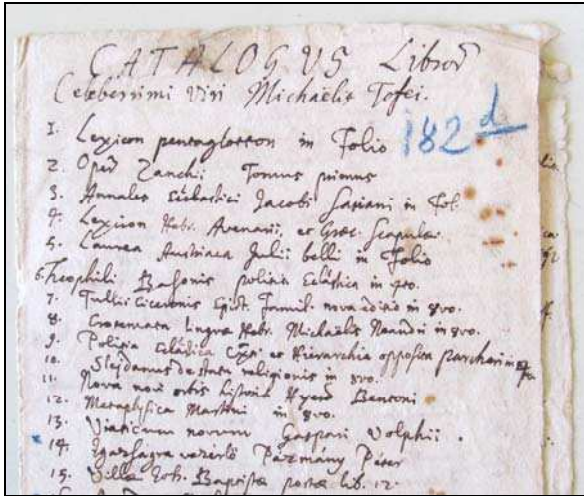 CATALOGUS Libror
Celeberrimi Viri Michaëlis Tofei.
182 d
1. Lexicon pentaglotton in Folio
2. Oper Zanchii Tomus primus
3. Annales Jacobi in Fol.
4. Lexicon Hebr. Avenarii, et Græc. Scapulæ.
5. Laurea Austriaca Julii belli in Folio
6. Theophili politia Eclastica in 4to.
7. Tullii Ciceronis Epist. Famil. nova editio in 8vo.
8. Erotemata Linguæ Hebr. Michaëlis Neandri in 8vo.
9. Politia et Hierarchia opposita
10. Slejdanus de Statu religionis in 8vo.
11. Nova novi orbis historia Benzoni
12. Metaphysica Martini in 8vo.
13. Viaticum novum Gaspari Volphii.
14. Igassagra vezérlö Pázmány Péter
15. Villæ Joh. Baptistæ portæ lib. 12.